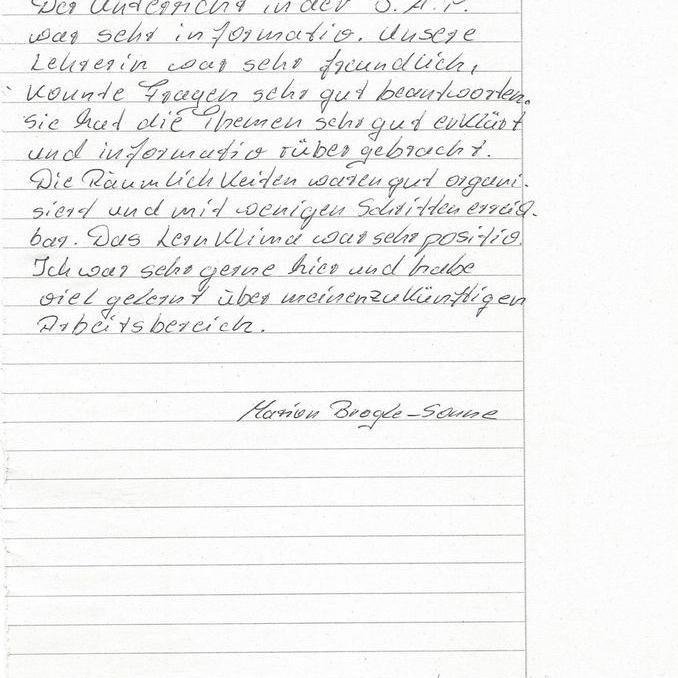 Der Unterricht in der S.A.P.
war sehr informativ. Unsere
Lehrerin war sehr freundlich,
konnte Fragen sehr gut beantworten.
sie hat die Themen sehr gut erklärt
und informativ rüber gebracht.
Die Räumlichkeiten waren gut organi-
siert und mit wenigen Schritten erreich-
bar. Das Lernklima war sehr positiv.
Ich war sehr gerne hier und habe
viel gelernt über meinen zukünftigen
Arbeitsbereich.
Marion Brogle-Sonne